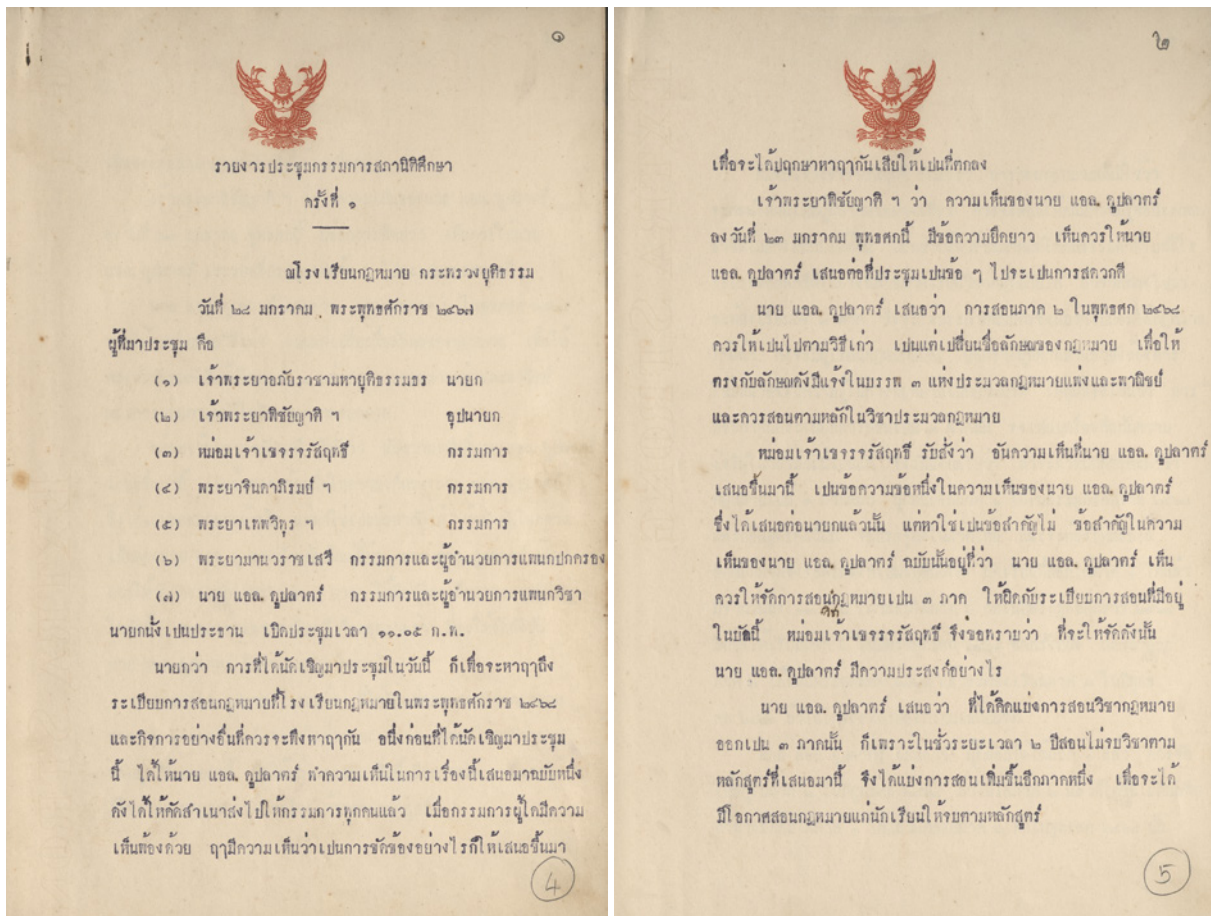 ๑
รายงารประชุมกรรมการสภานิติศึกษา
ครั้งที่ ๑
ณโรงเรียนกฎหมาย กระทรวงยุติธรรม
วันที่ ๒๘ มกราคม พระพุทธศักราช ๒๔๖๗
ผู้ที่มาประชุม คือ
(๑) เจ้าพระยาอภัยราชามหายุติธรรมธร นายก
(๒) เจ้าพระยาพิชัยญาติ ฯ อุปนายก
(๓) หม่อมเจ้าเขจรจรัสฤทธิ์ กรรมการ
(๔) พระยาจินดาภิรมย์ ฯ กรรมการ
(๕) พระยาเทพวิทุร ฯ กรรมการ
(๖) พระยามานวราชเสวี กรรมการและผู้อำนวยการแพนกปกครอง
(๗) นาย แอล. ดูปลาตร์ กรรมการและผู้อำนวยการแพนกวิชา
นายกนั่งเปนประธาน เปิดประชุมเวลา ๑๑.๐๕ ก.ท.
นายกว่า การที่ได้นัดเชิญมาประชุมในวันนี้ ก็เพื่อจะหาฤๅถึง
ระเบียบการสอนกฎหมายที่โรงเรียนกฎหมายในพระพุทธศักราช ๒๔๖๘
และกิจการอย่างอื่นที่ควรจะพึงหาฤๅกัน อนึ่งก่อนที่ได้นัดเชิญมาประชุม
นี้ ได้ให้นาย แอล. ดูปลาตร์ ทำความเห็นในการเรื่องนี้เสนอมาฉบับหนึ่ง
ดังได้ให้คัดสำเนาส่งไปให้กรรมการทุกคนแล้ว เมื่อกรรมการผู้ใดมีความ
เห็นพ้องด้วย ฤๅมีความเห็นว่าเปนการขัดข้องอย่างไรก็ให้เสนอขึ้นมา
4
๒
เพื่อจะได้ปฤกษาหาฤๅกันเสียให้เปนที่ตกลง
เจ้าพระยาพิชัยญาติ ฯ ว่า ความเห็นของนาย แอล. ดูปลาตร์
ลงวันที่ ๒๓ มกราคม พุทธศกนี้ มีข้อความยืดยาว เห็นควรให้นาย
แอล. ดูปลาตร์ เสนอต่อที่ประชุมเปนข้อ ๆ ไปจะเปนการสดวกดี
นาย แอล. ดูปลาตร์ เสนอว่า การสอนภาค ๒ ในพุทธศก ๒๔๖๘
ควรให้เปนไปตามวิธีเก่า เปนแต่เปลี่ยนชื่อลักษณของกฎหมาย เพื่อให้
ตรงกับลักษณดังมีแจ้งในบรรพ ๓ แห่งประมวลกฎหมายแพ่งและพาณิชย์
และควรสอนตามหลักในวิชาประมวลกฎหมาย
หม่อมเจ้าเขจรจรัสฤทธิ์ รับสั่งว่า อันความเห็นที่นาย แอล. ดูปลาตร์
เสนอขึ้นมานี้ เปนข้อความข้อหนึ่งในความเห็นของนาย แอล. ดูปลาตร์
ซึ่งได้เสนอต่อนายกแล้วนั้น แต่หาใช่เปนข้อสำคัญไม่ ข้อสำคัญในความ
เห็นของนาย แอล. ดูปลาตร์ ฉบับนั้นอยู่ที่ว่า นาย แอล. ดูปลาตร์ เห็น
ควรให้จัดการสอนกฎหมายเปน ๓ ภาค ให้ผิดกับระเบียบการสอนที่มีอยู่
ในบัดนี้ หม่อมเจ้าเขจรจรัสฤทธิ์ จึงขอทราบว่า ที่จะให้จัดดังนั้น
นาย แอล. ดูปลาตร์ มีความประสงค์อย่างไร
นาย แอล. ดูปลาตร์ เสนอว่า ที่ได้คิดแบ่งการสอนวิชากฎหมาย
ออกเปน ๓ ภาคนั้น ก็เพราะในชั่วระยะเวลา ๒ ปีสอนไม่จบวิชาตาม
หลักสูตร์ที่เสนอมานี้ จึงได้แบ่งการสอนเพิ่มขึ้นอีกภาคหนึ่ง เพื่อจะได้
มีโอกาศสอนกฎหมายแก่นักเรียนให้จบตามหลักสูตร์
5